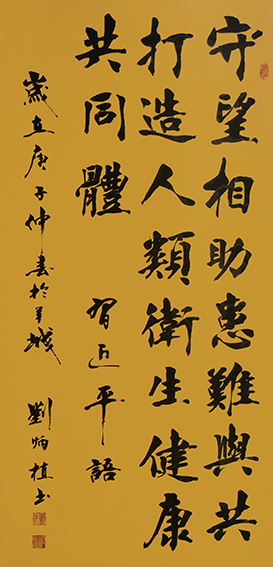 守望相助患難與共
打造人類衛生健康
共同體 習近平語
歲在庚子仲春於羊城 劉炳植書